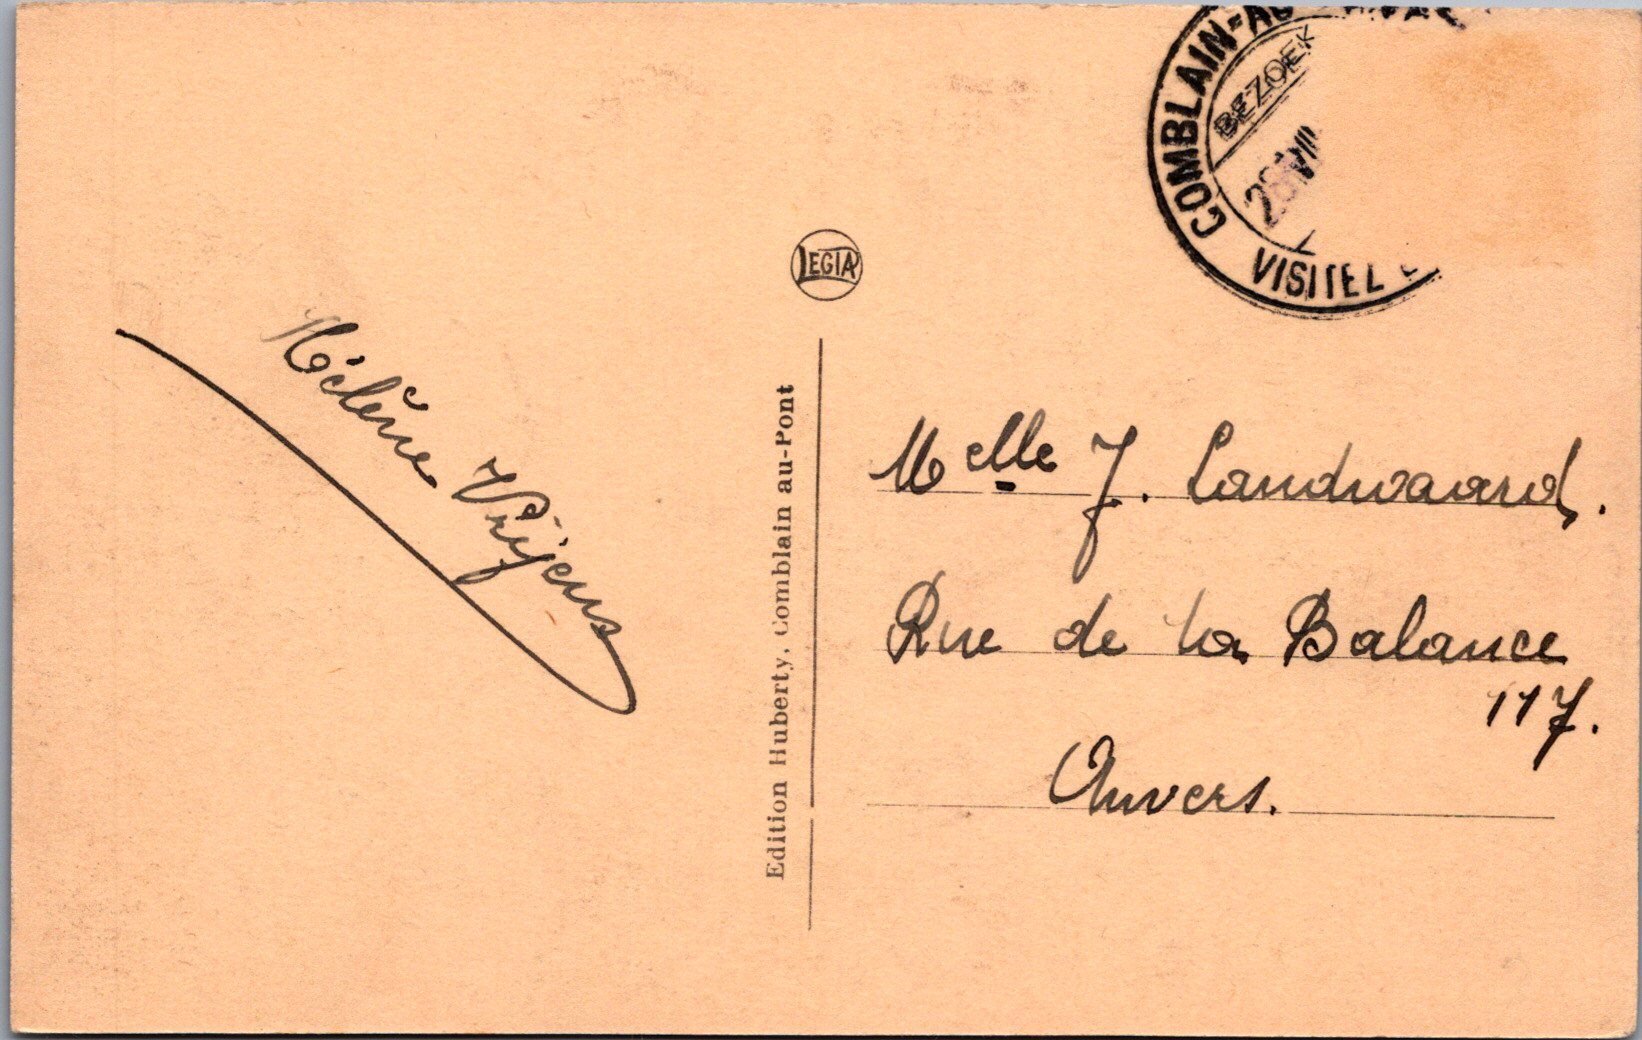 COMBLAIN-AU
BEZOEK
28 VII
VISITEZ
LEGIA
Hélène Vrijens
Edition Huberty, Comblain au-Pont
Melle J. Landwaard.
Rue de la Balance
117.
Anvers.